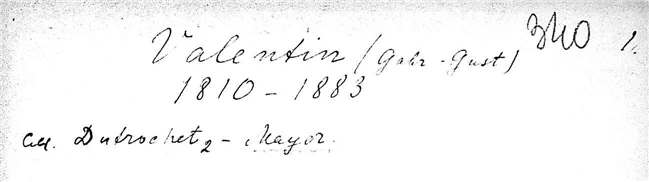 Valentin (Gabr-Gust) 340 1.
1810-1883
Coll. Dutrochet 2 - Mayor.